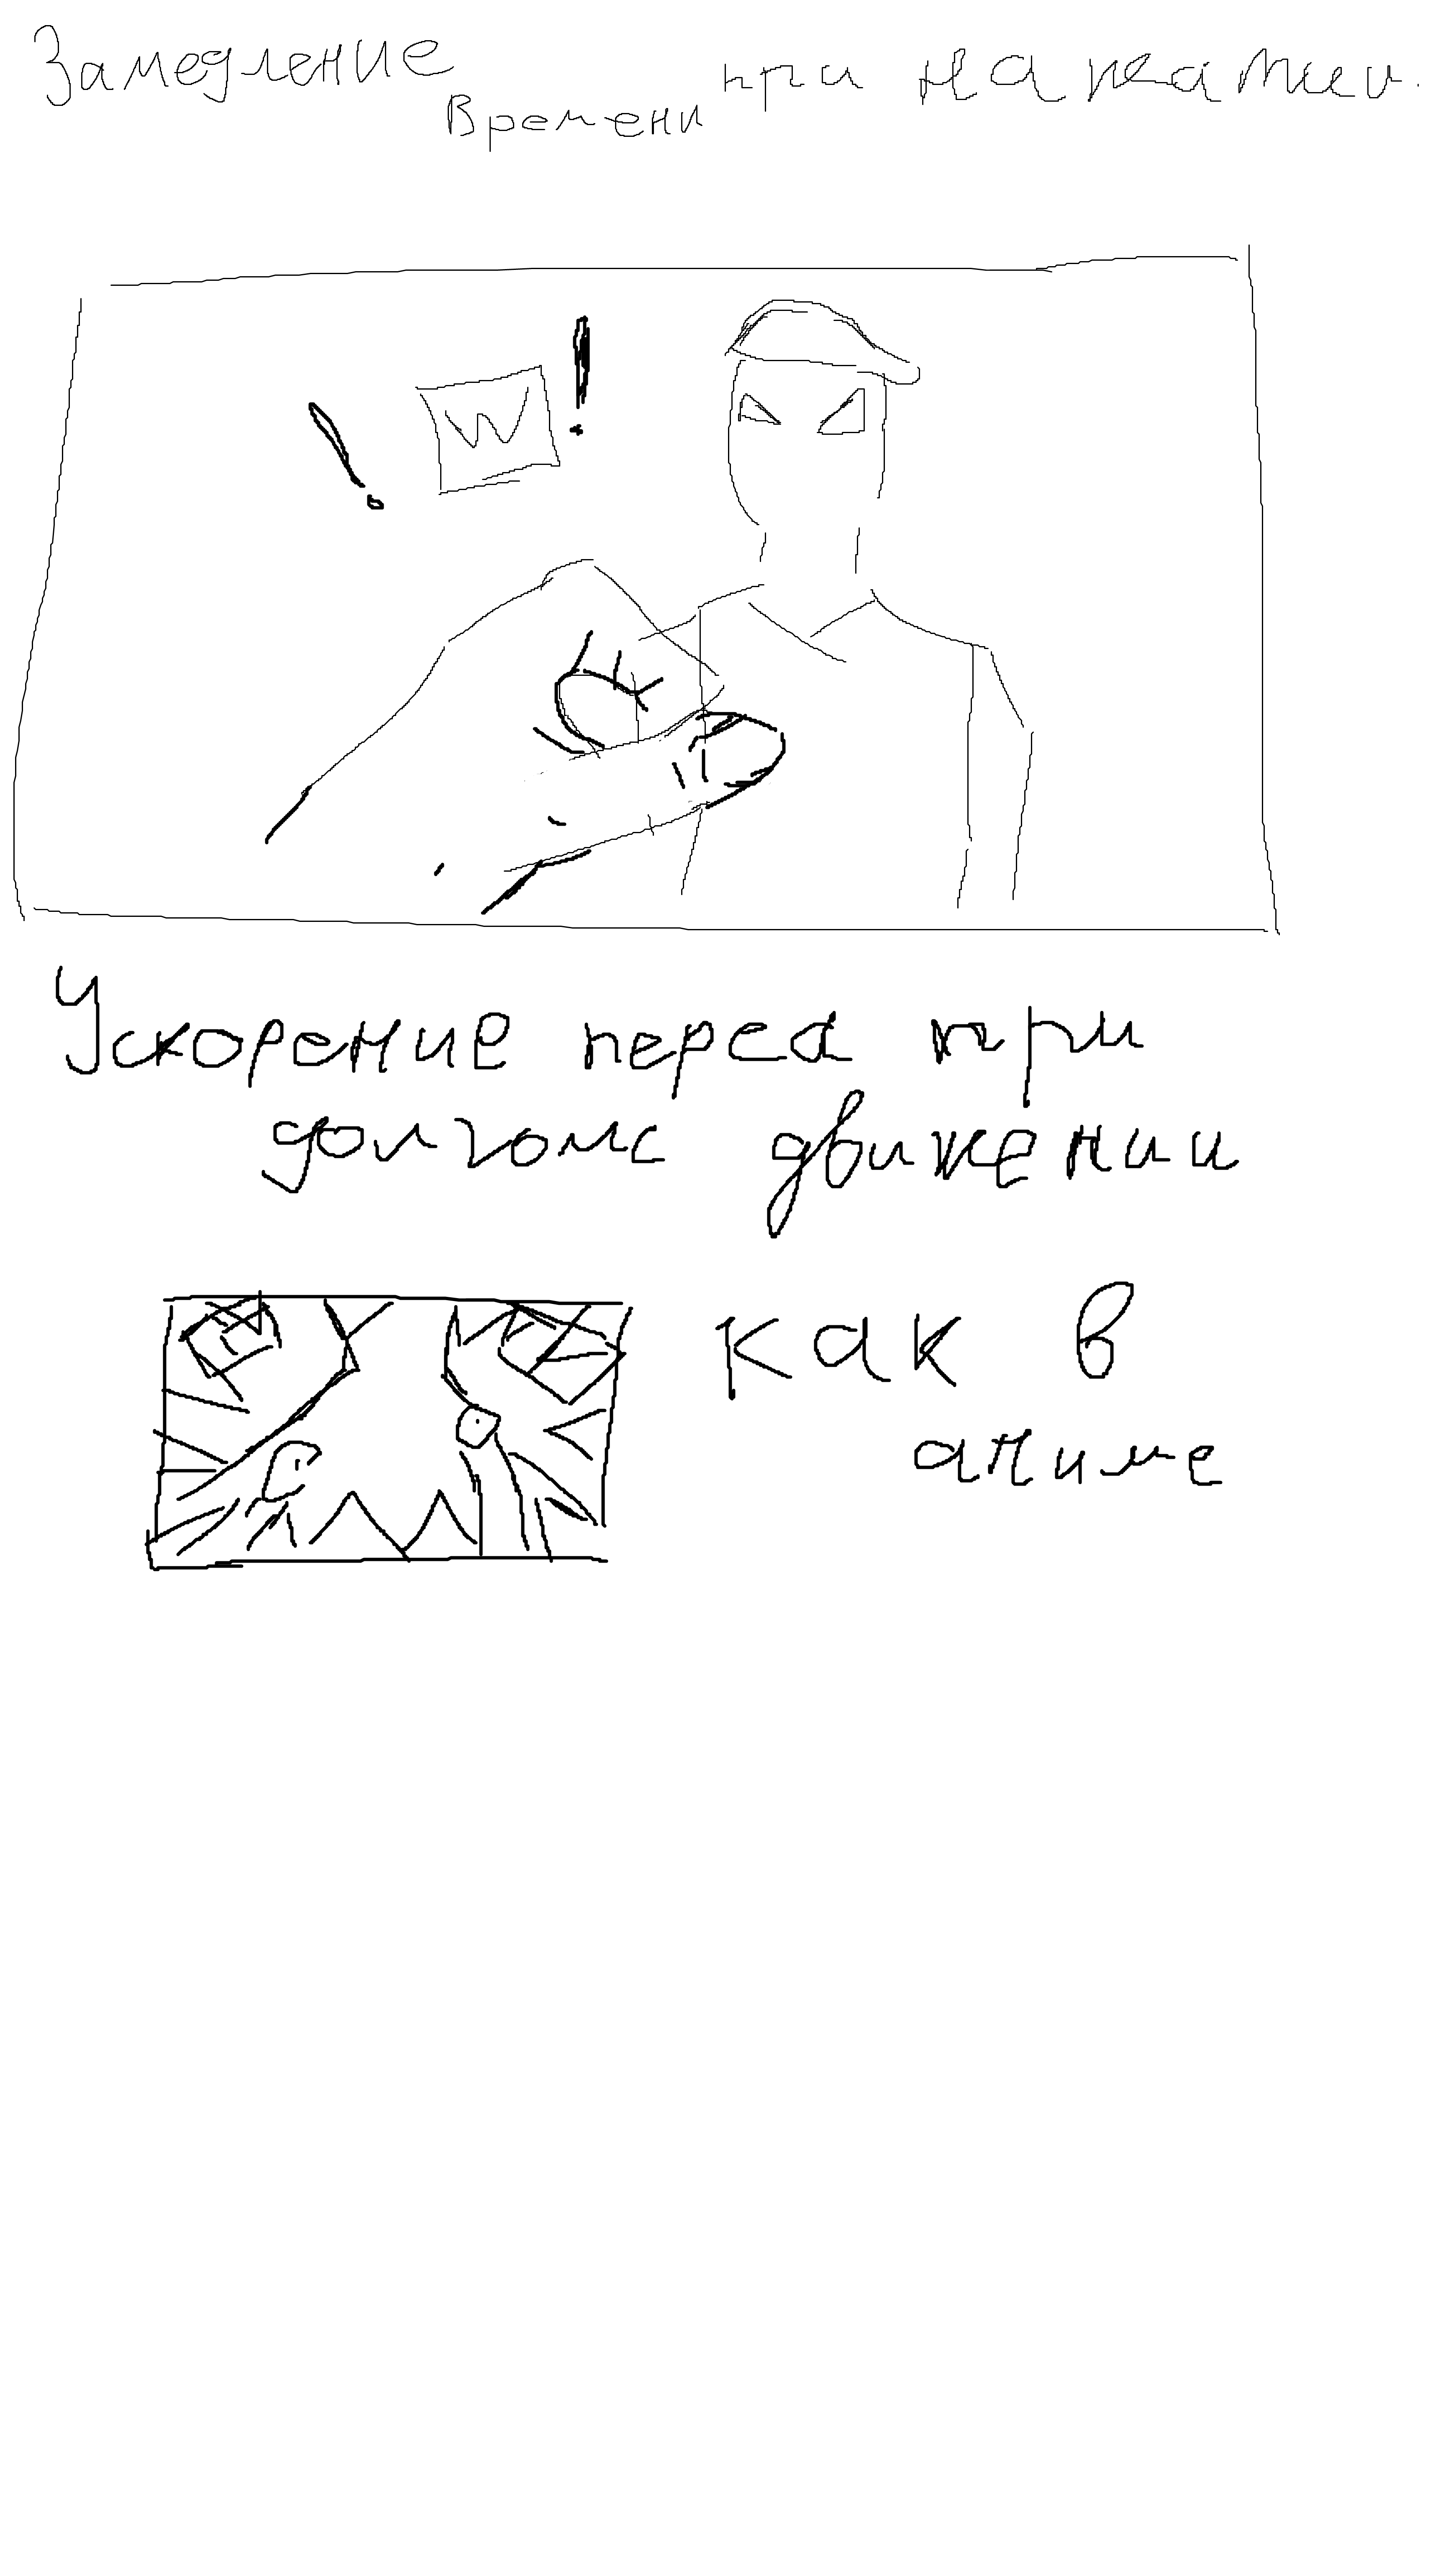 Замедление времени при нажатии.
W
Ускорение перса при
долгом движении
как в
аниме